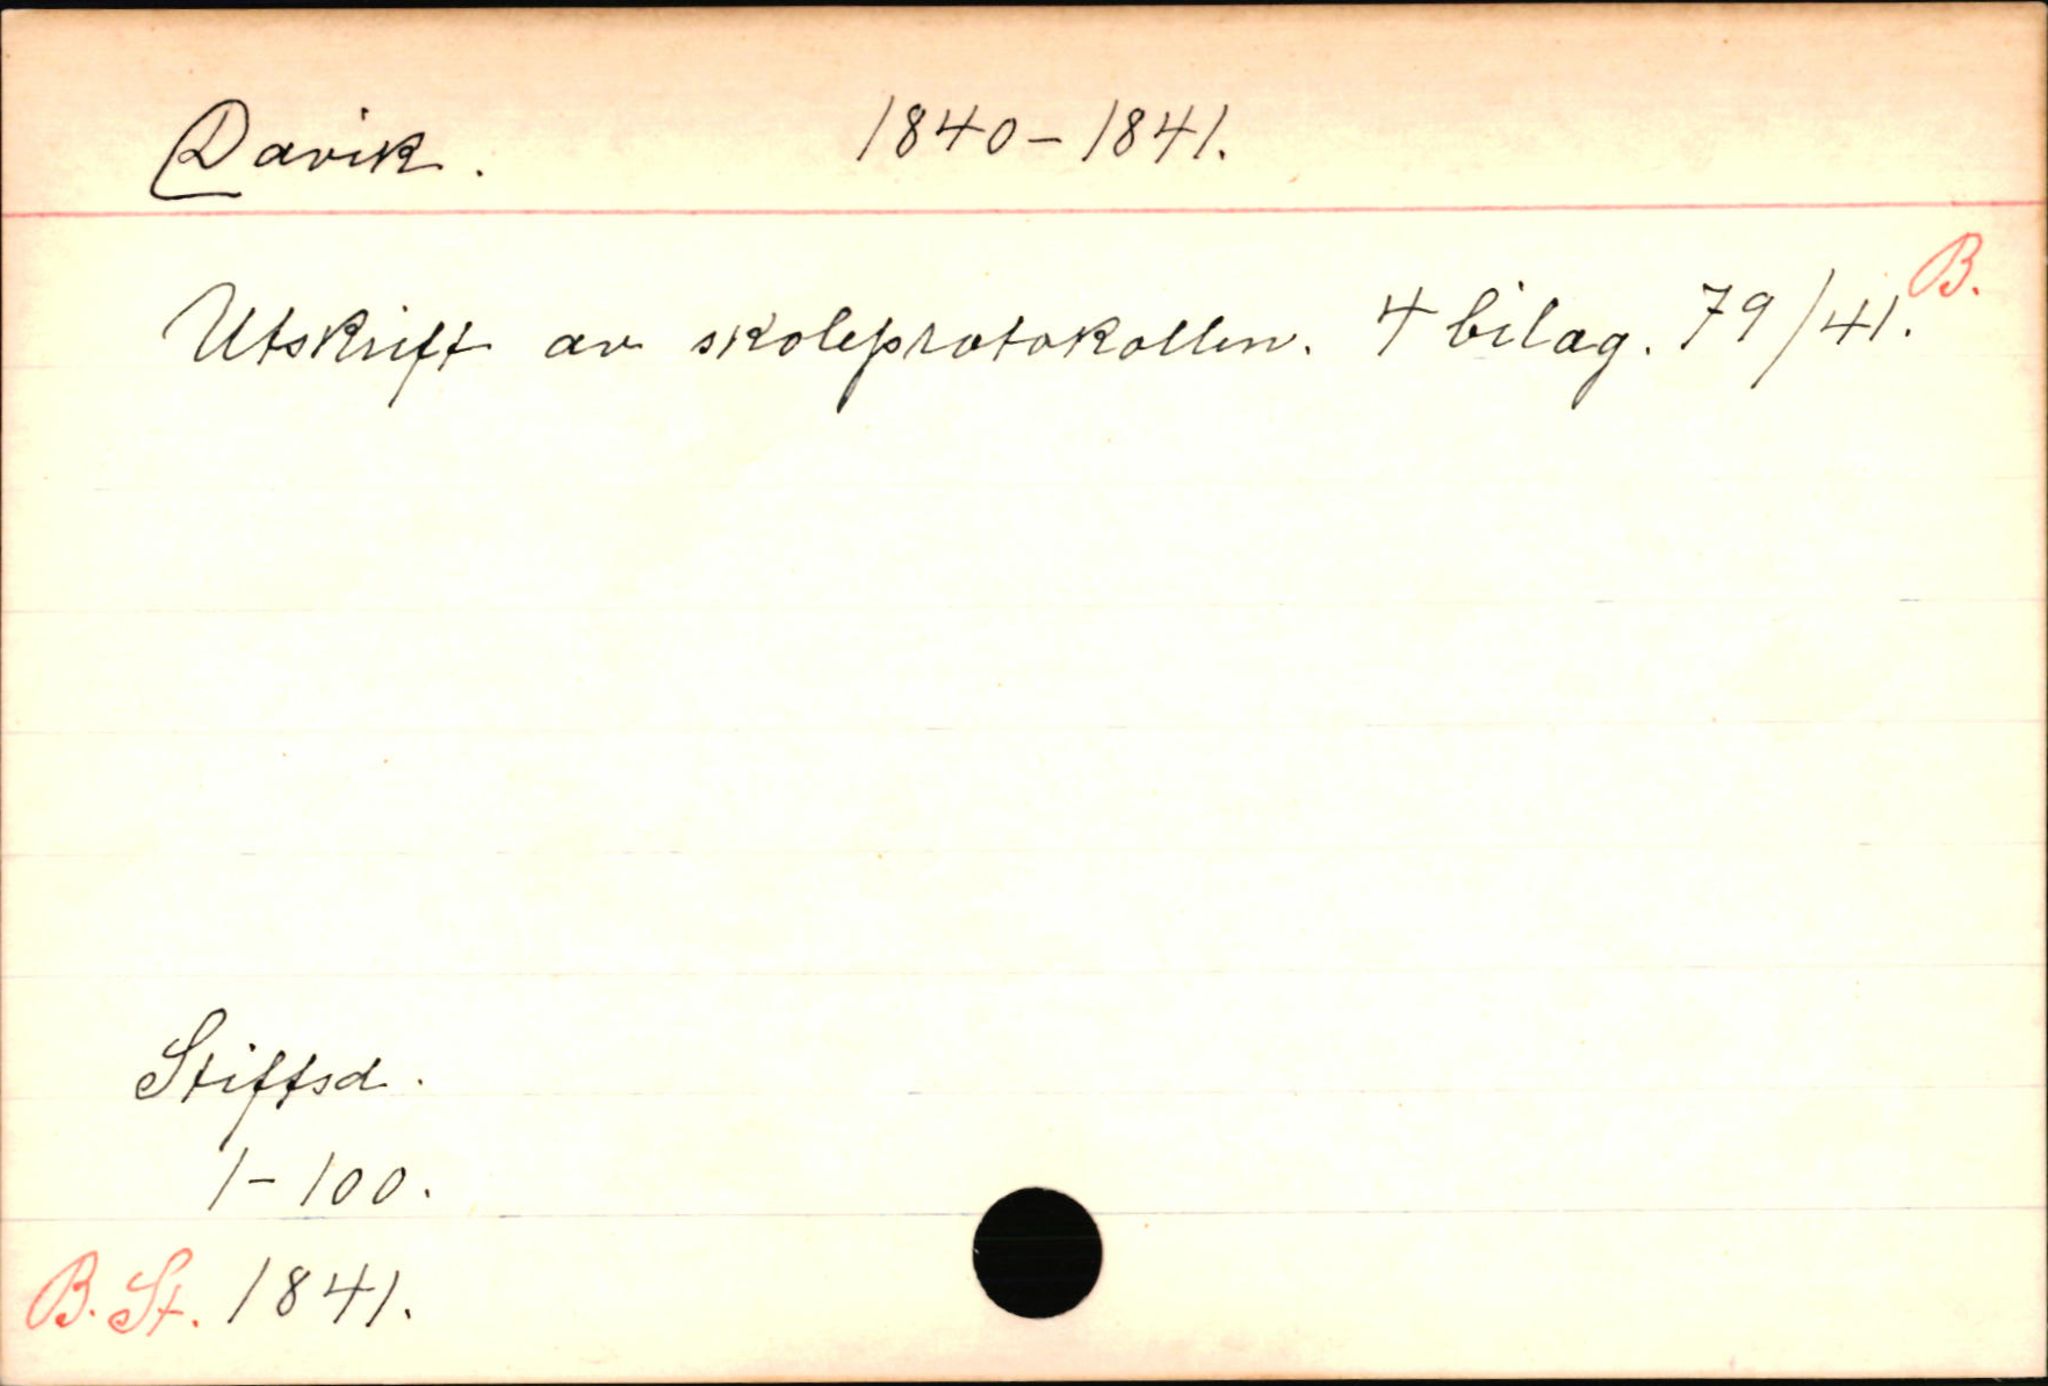 Davik. 1840-1841.
Utskrift av skoleprotokollen. 4 bilag. 79/41. B.
Stiftsd.
1-100.
B. St. 1841.